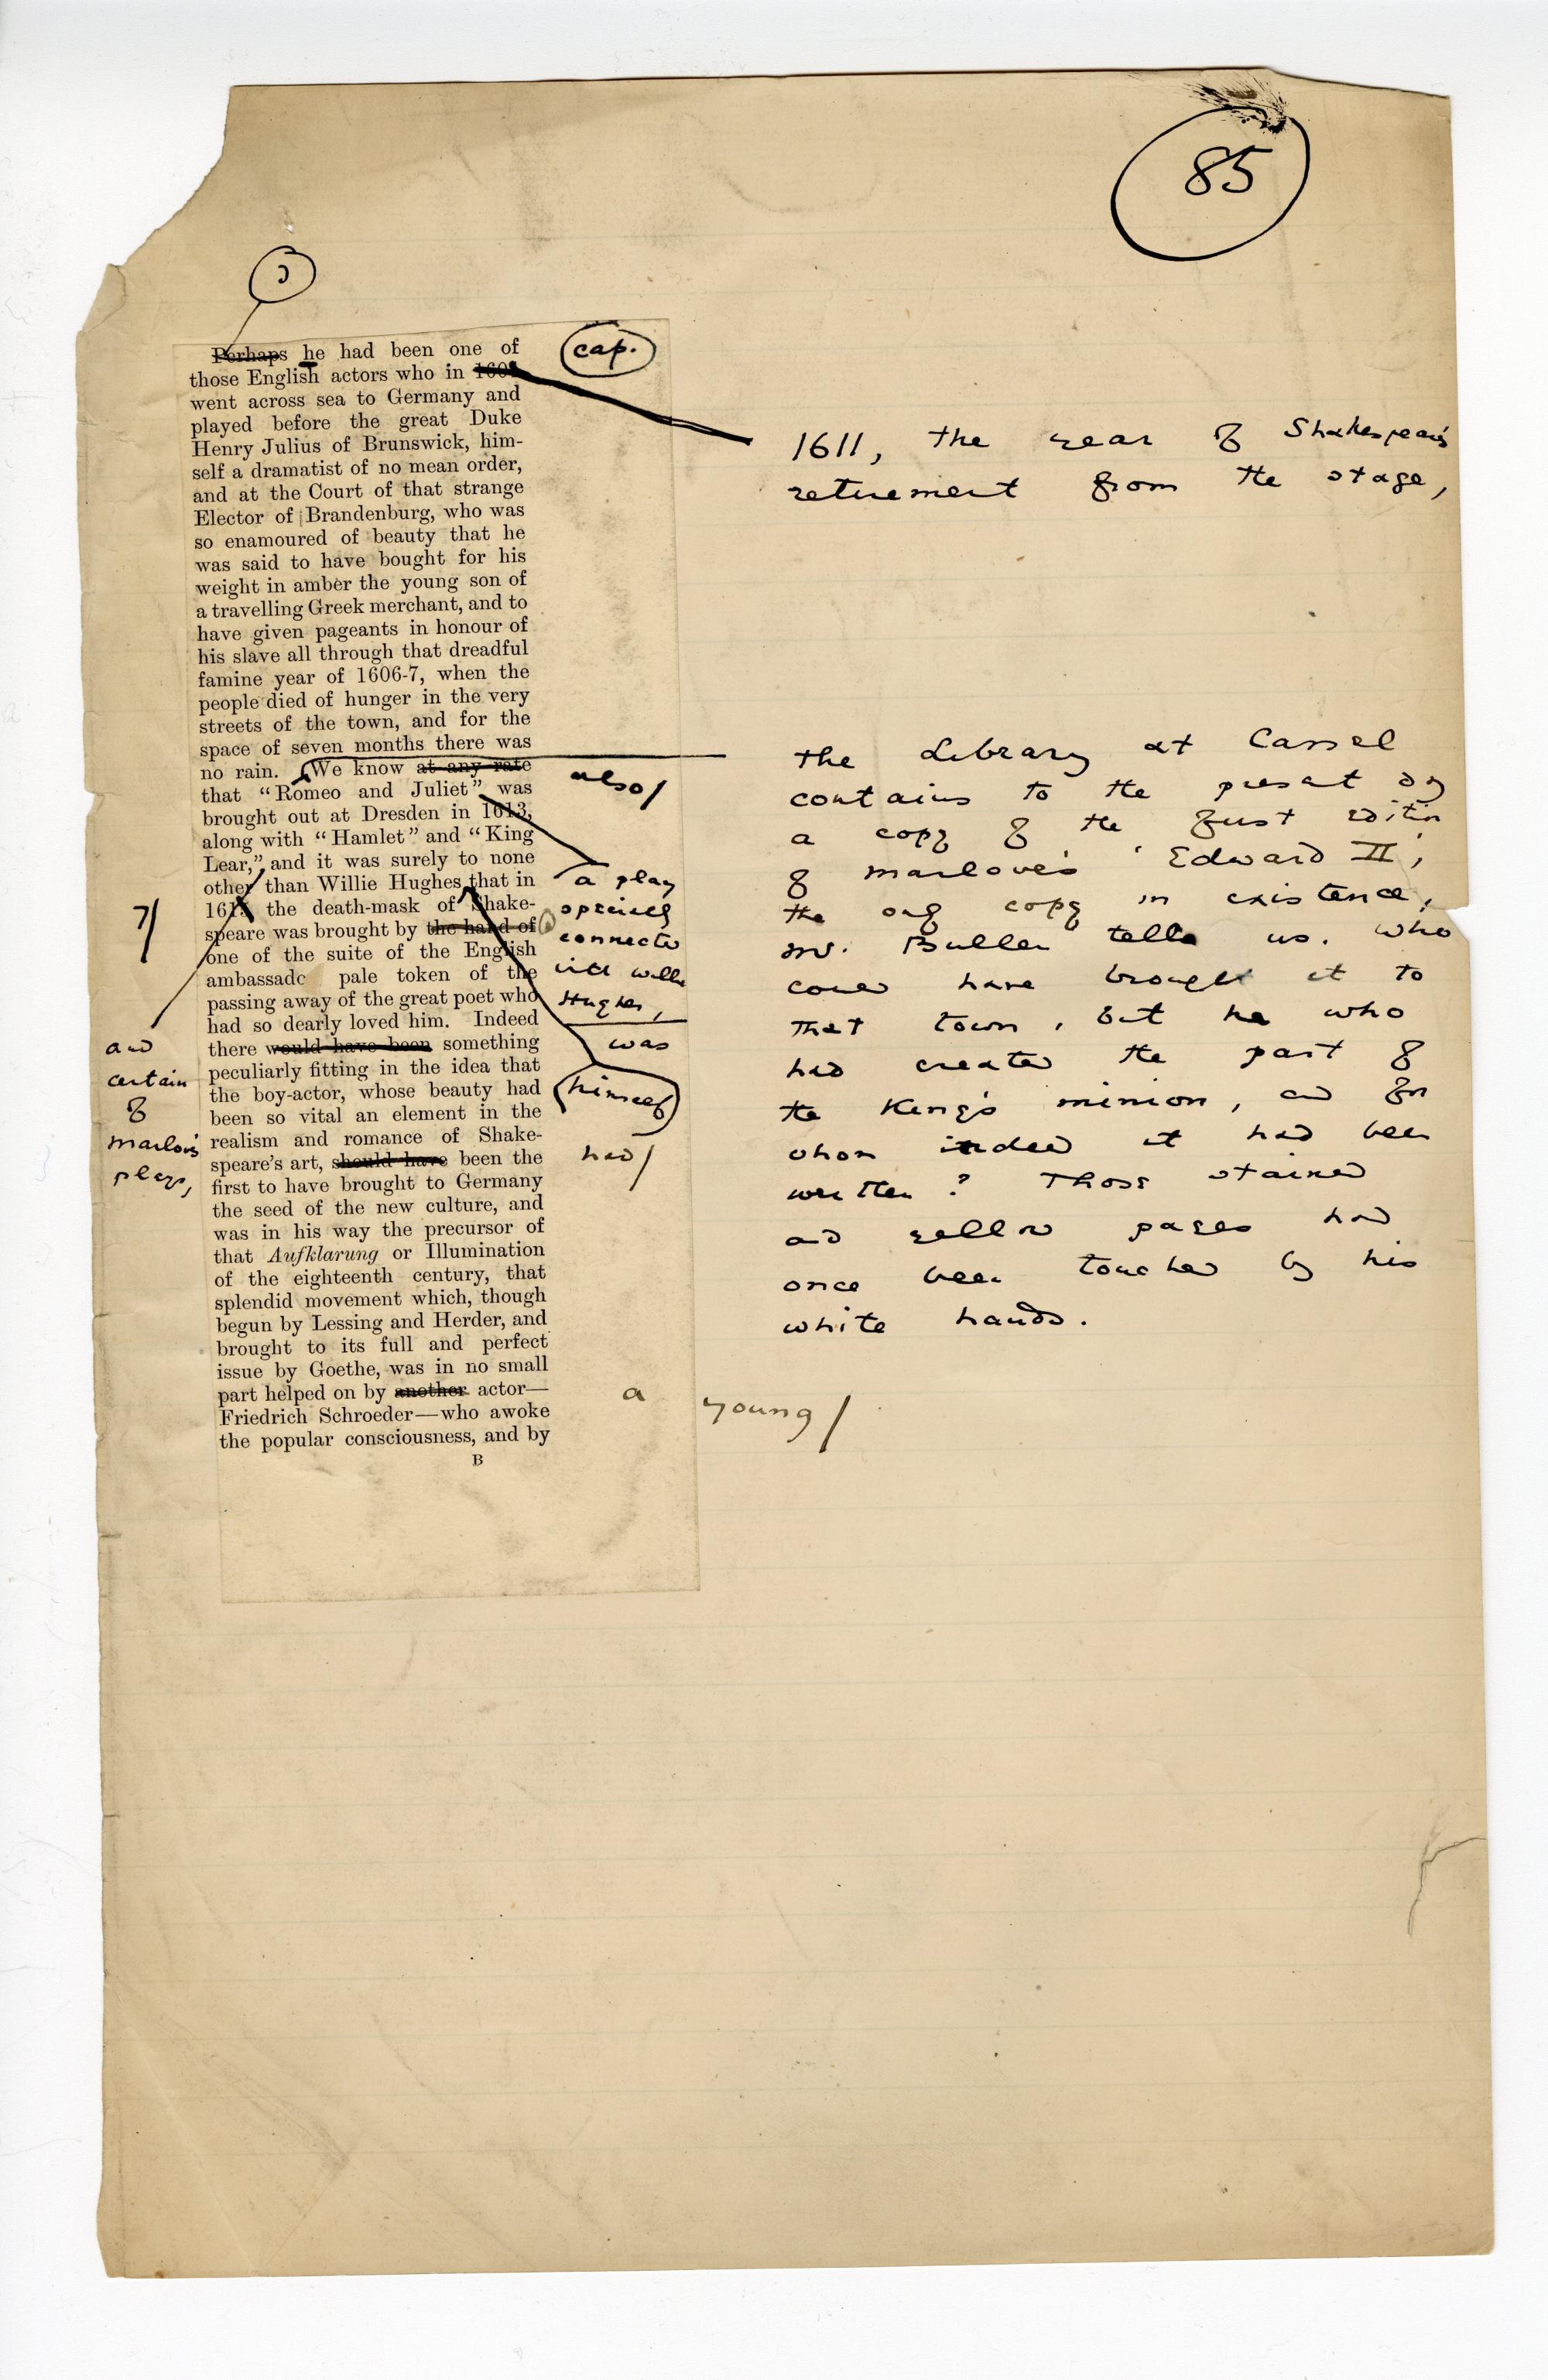 85
Perhaps he had been one of
those English actors who in 160
went across sea to Germany and
played before the great Duke
Henry Julius of Brunswick, him-
self a dramatist of no mean order,
and at the Court of that strange
Elector of Brandenburg, who was
so enamoured of beauty that he
was said to have bought for his
weight in amber the young son of
a travelling Greek merchant, and to
have given pageants in honour of
his slave all through that dreadful
famine year of 1606-7, when the
people died of hunger in the very
streets of the town, and for the
space of seven months there was
no rain. We know at any rate
that “Romeo and Juliet” was
brought out at Dresden in 1613,
along with “Hamlet” and “King
Lear,” and it was surely to none
other than Willie Hughes that in
161 the death-mask of Shake-
speare was brought by the hand of
one of the suite of the English
ambassado pale token of the
passing away of the great poet who
had so dearly loved him. Indeed
there would have been something
peculiarly fitting in the idea that
the boy-actor, whose beauty had
been so vital an element in the
realism and romance of Shake-
speare's art, should have been the
first to have brought to Germany
the seed of the new culture, and
was in his way the precursor of
that Aufklarung or Illumination
of the eighteenth century, that
splendid movement which, though
begun by Lessing and Herder, and
brought to its full and perfect
issue by Goethe, was in no small
part helped on by another actor—
Friedrich Schroeder—who awoke
the popular consciousness, and by
B
cap.
also/
a play
specially
connected
with Willie
Hughes,
was
himself
had/
a young/
7/
and
certain
of
Marlowe's
plays,
1611, the year of Shakespeare's
retirement from the stage,
the Library at Cassel
contains to the present day
a copy of the first edition
of Marlowe's 'Edward II',
the only copy in existence,
Mr. Bullen tells us. Who
could have brought it to
that town, but he who
had created the part of
the King's minion, and for
whom indeed it had been
written? Those stained
and yellow pages had
once been touched by his
white hands.